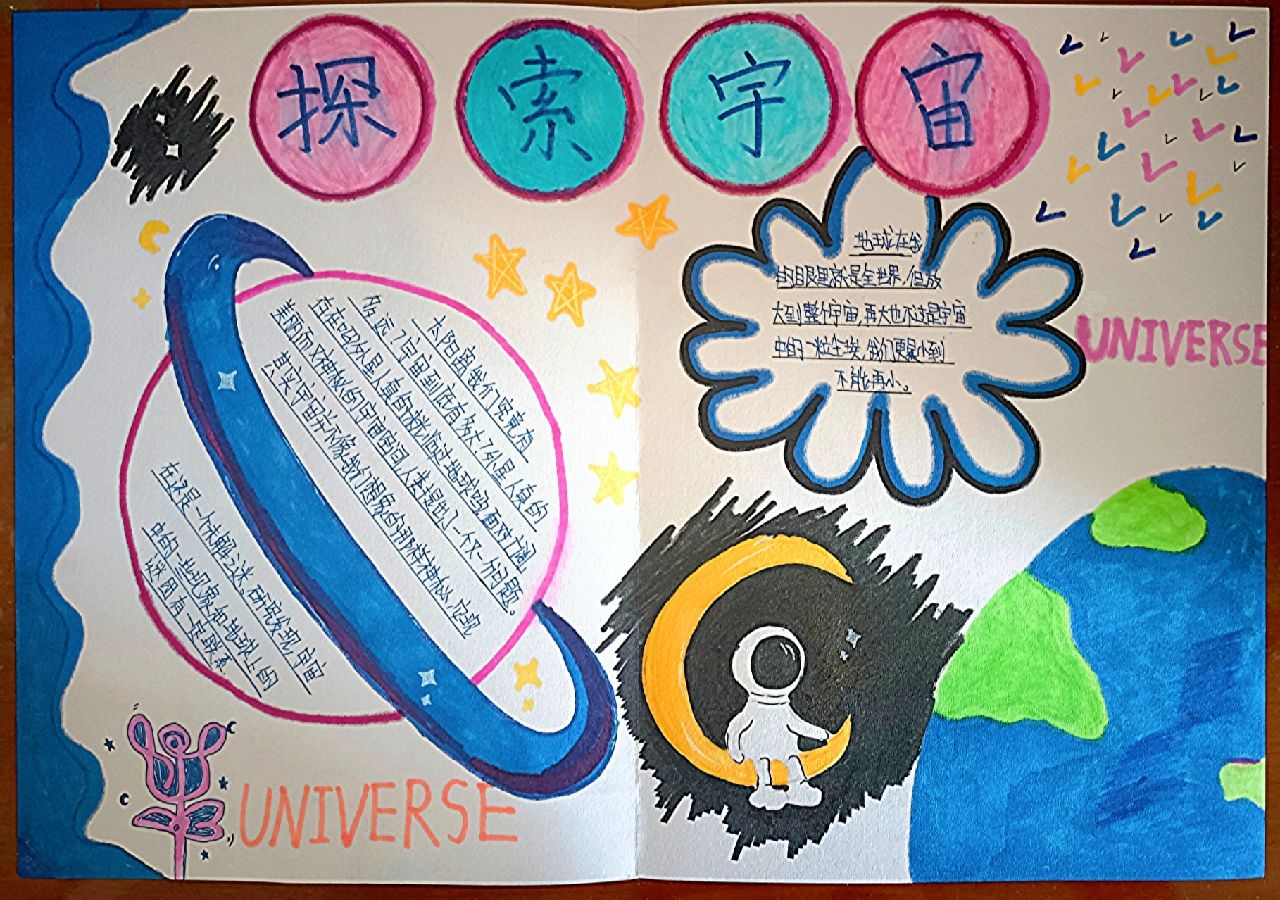 探索宇宙
太阳离我们究竟有
多远?宇宙到底有多大?外星人真的
存在吗?外星人真的被光临过地球吗,面对
美丽而又神秘的宇宙空间,人类提出了一个又一个问题。
其实宇宙并不像我们想象的那样神秘,它现
在还是一个未解之迷,研究发现,宇宙
中的一些现象和地球上的
有一定联系
地球在我
们眼里就是全世界,但放
大到整个宇宙,再大也不过是宇宙
中的一粒尘埃,我们更是小到
不能再小。
UNIVERSE
UNIVERSE